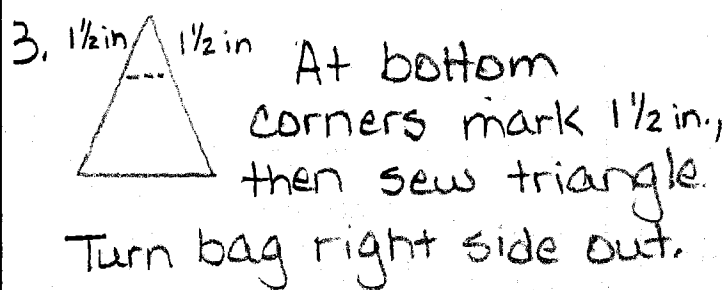 3. 1½in 1½in At bottom
corners mark 1½in.,
then sew triangle.
Turn bag right side out.